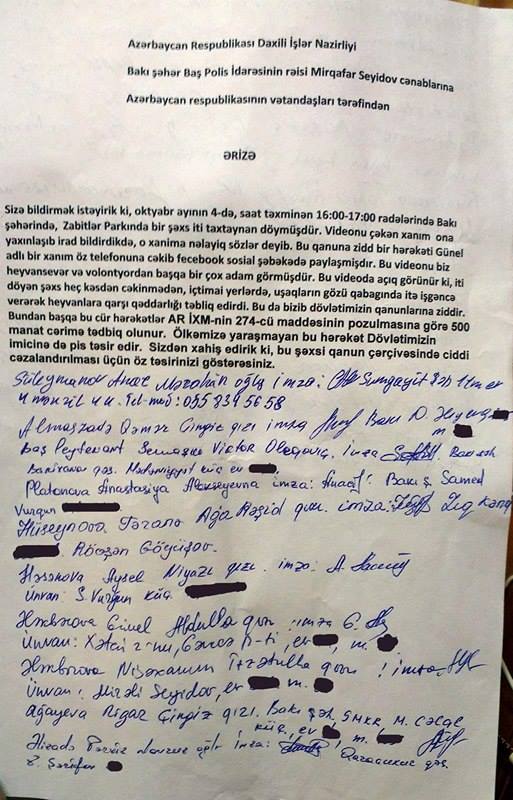 Azərbaycan Respublikası Daxili İşlər Nazirliyi
Bakı şəhər Baş Polis İdarəsinin rəisi Mirqafar Seyidov cənablarına
Azərbaycan respublikasının vətəndaşları tərəfindən
ƏRİZƏ
Sizə bildirmək istəyirik ki, oktyabr ayının 4-də, saat təxminən 16:00-17:00 radələrində Bakı
şəhərində, Zabitlər Parkında bir şəxs iti taxtaynan döymüşdür. Videonu çəkən xanım ona
yaxınlaşıb irad bildirdikdə, o xanima nəlayiq sözlər deyib. Bu qanuna zidd bir hərəkəti Günel
adlı bir xanım öz telefonuna cəkib fecebook sosial şəbəkədə paylaşmışdır. Bu videonu biz
heyvansevər və volontyordan başqa bir çox adam görmüşdür. Bu videoda açıq görünür ki, iti
döyən şəxs heç kəsdən cəkinmədən, içtimai yerlərdə, uşaqların gözü qabagında itə işgəncə
verərək heyvanlara qarşı qəddarlığı təbliq edirdi. Bu da bizib dövlətimizin qanunlarına ziddir.
Bundan başqa bu cür hərəkətlər AR İXM-nin 274-cü maddəsinin pozulmasına görə 500
manat cərimə tədbiq olunur. Ölkəmizə yaraşmayan bu hərəkət Dövlətimizin
imicinə də pis təsir edir. Sizdən xahiş edirik ki, bu şəxsi qanun çərçivəsində ciddi
cəzalandırılması üçün öz təsirinizi göstərəsiniz.
Süleymanov Anar oğlu imza: Sumqayıt şəh
mənzil 055 839 56 58
Almaszadə Qəmər Çingiz qızı imza Bakı
m
baş leytenant Victor Oleqoviç imza
küç ev
Platonova Anastasiya Alekseyevna imza: Bakı ş. Səməd
Vurgun
Hüseynova Təranə Ağa Rəşid qızı imza:
Rövşən Göyüşov
Həsənova Aysel Niyazi qızı imza: A.
Ünvan: S. Vurgun küç
Günel Abdulla qızı imza G.
Ünvan: Xətai r-nu, Gəncə p-ti, ev m.
İzzətulla qızı imza
Ünvan: Mirəli Seyidov, ev m.
Ağayeva Nigar Çingiz qızı. Bakı şəh, M. Cəlal
küç, ev m.
Pərviz oğlu imza: Qaraçuxur qəs